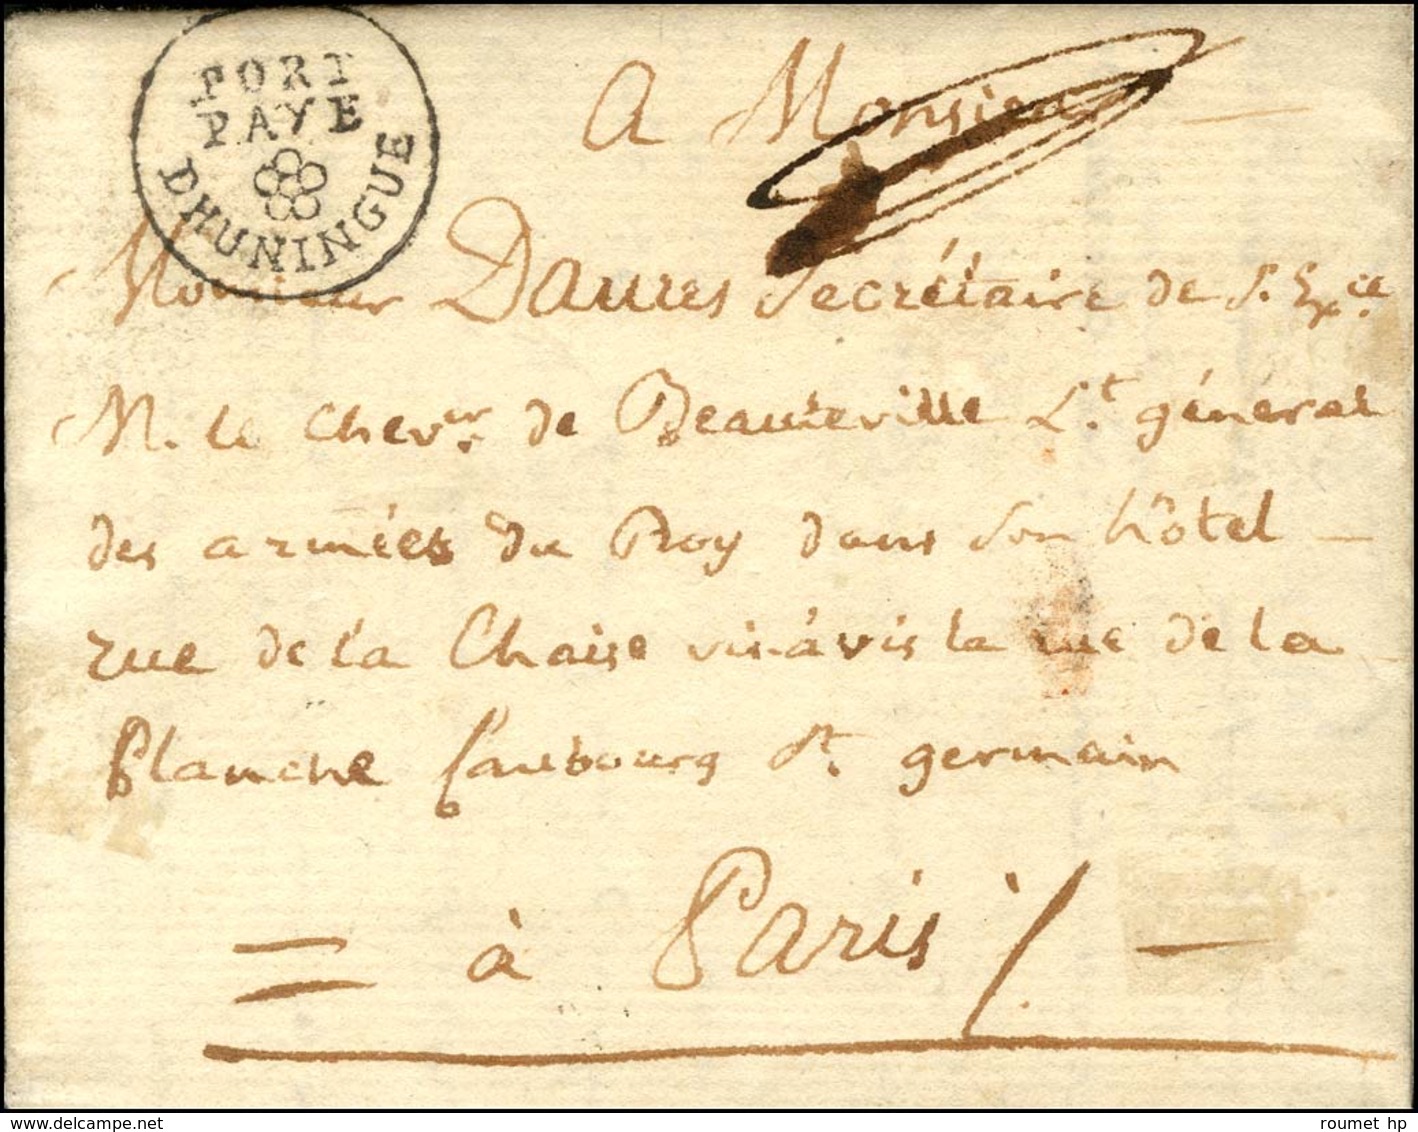 PORT
PAYE
DHUNINGUE
A Monsieur
Monsieur Daures Secrétaire de S. Exce.
M. le chevr. de Beauteville Lt. général
des armées du Roy dans son hôtel
rue de la Chaise vis à vis la rue de la
Planche faubourg St. germain
à Paris
roumet hp